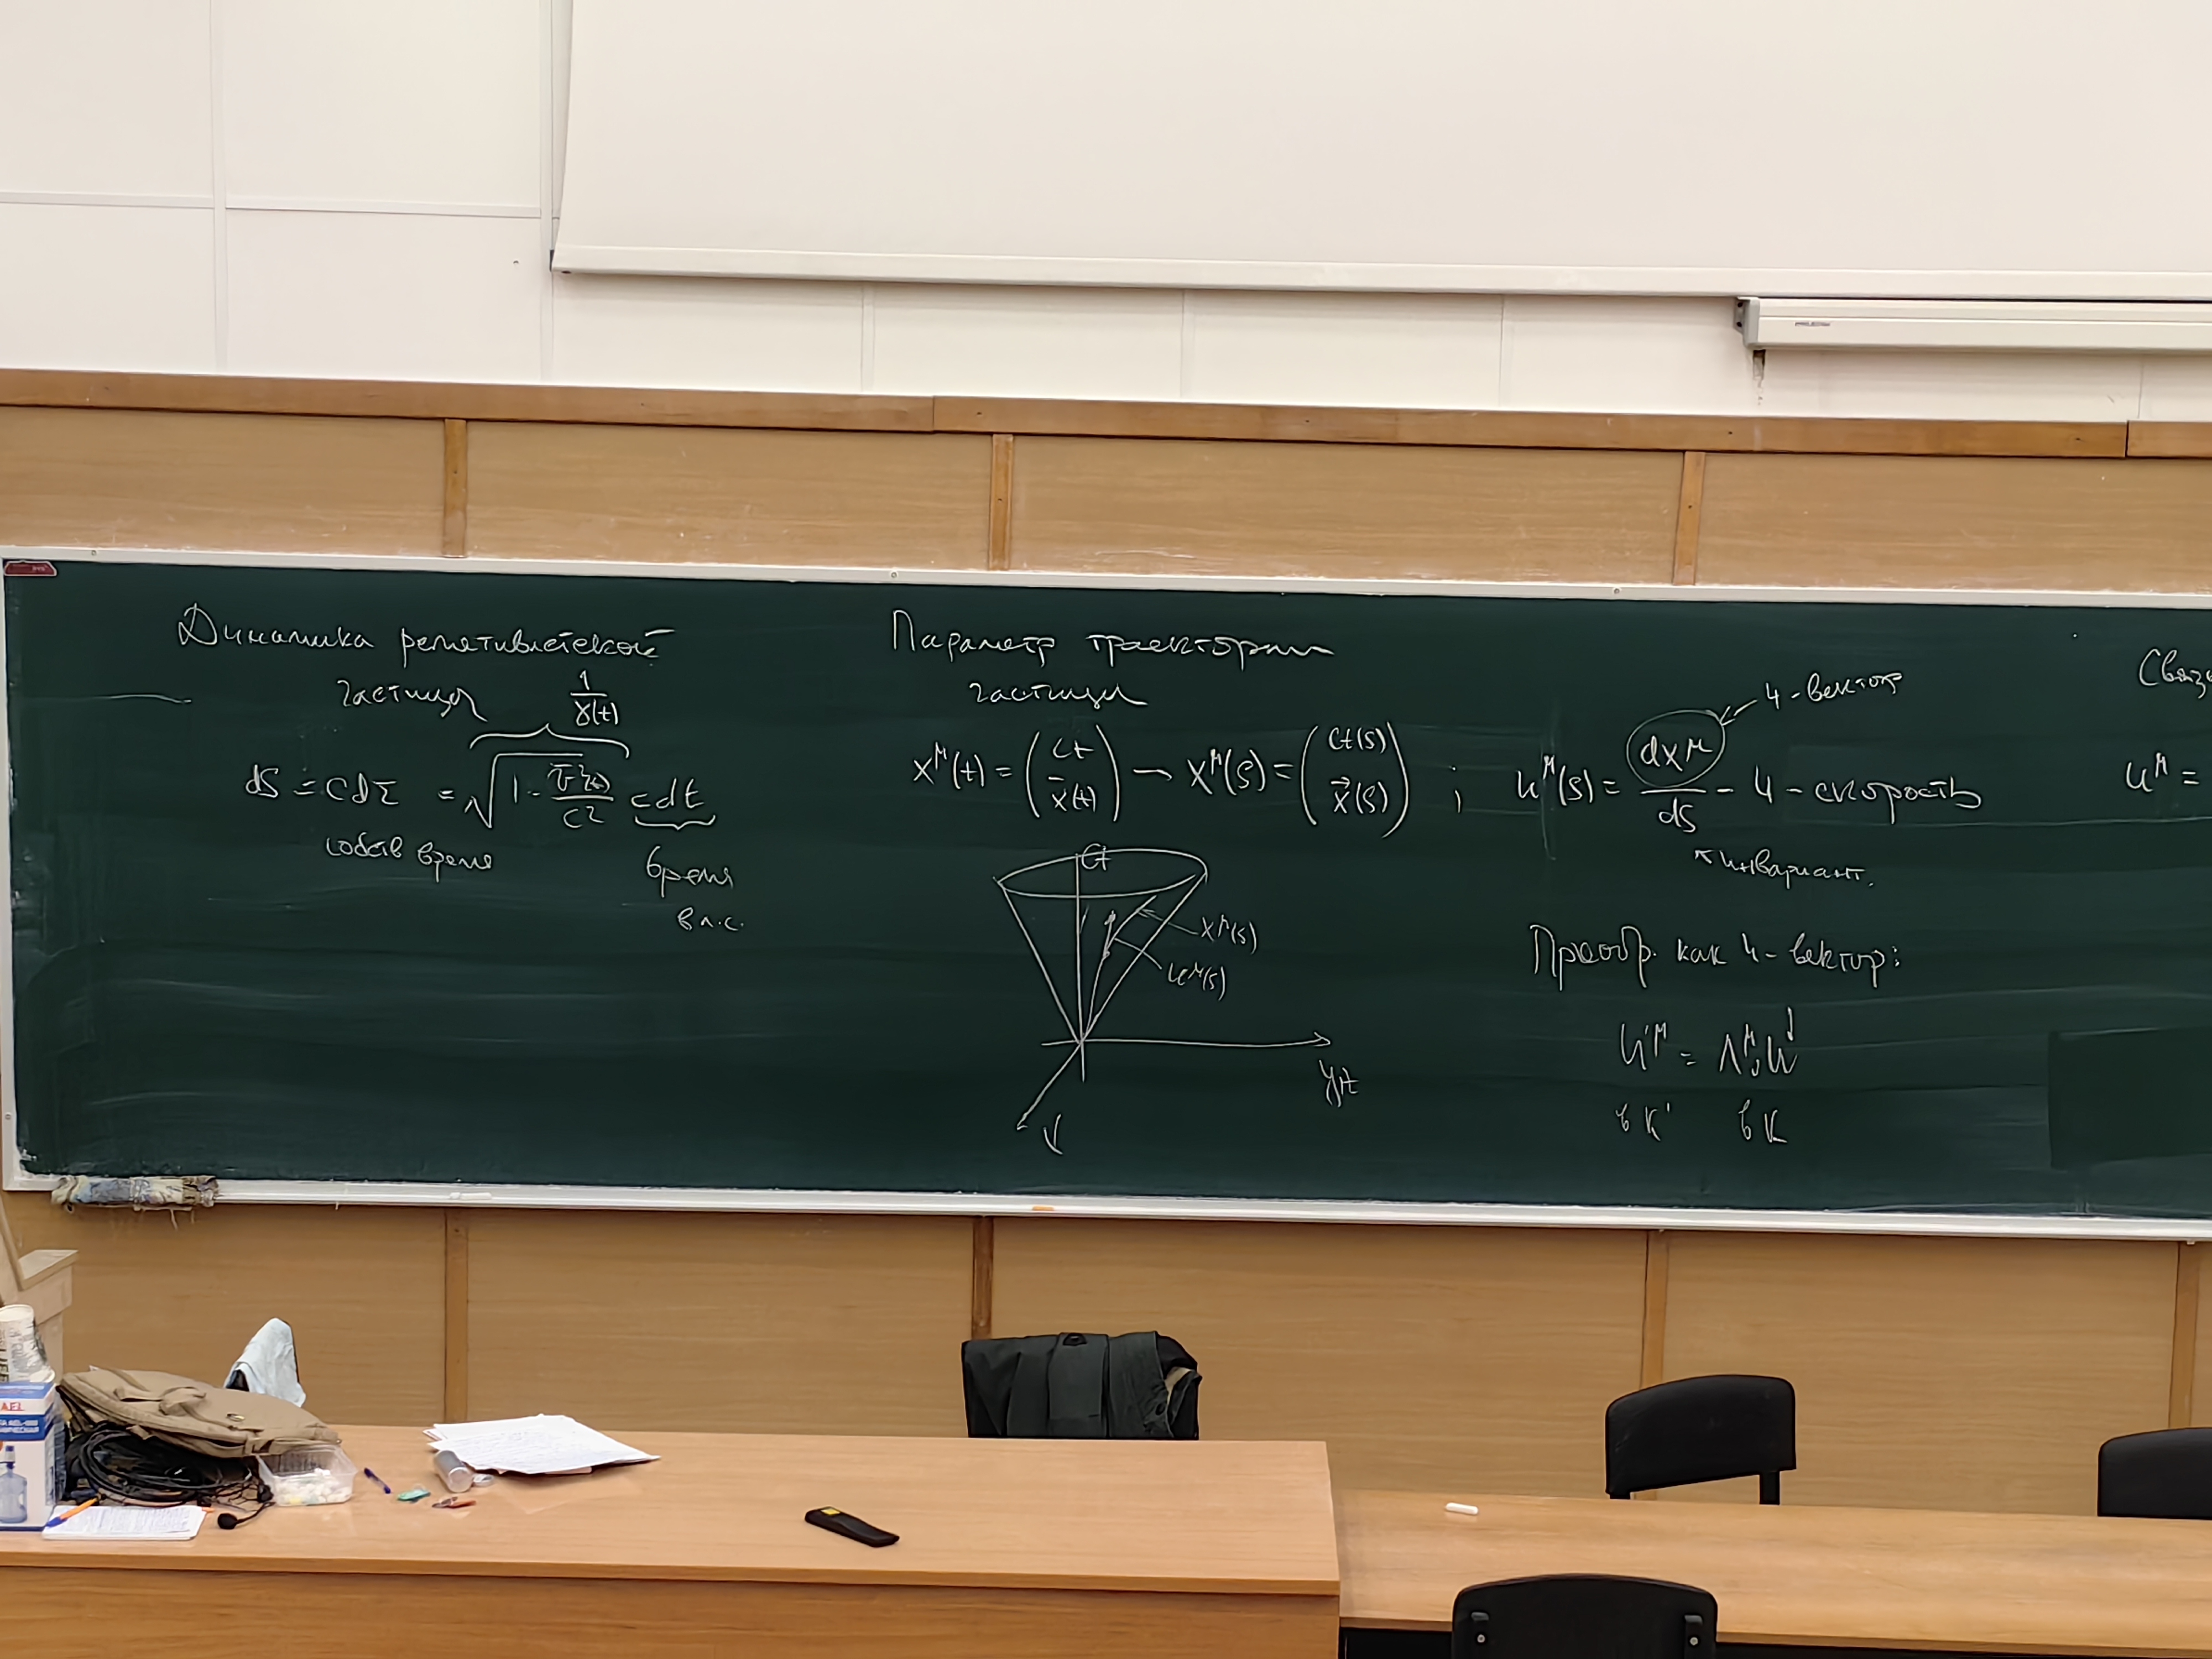 Динамика релятивистской
частицы
1/γ(t)
ds = cdτ = √(1 - v̄²(t)/c²) cdt
собств время
время
в л.с.
Параметр траектории
частицы
x^μ(t) = (ct, x̄(t)) → x^μ(s) = (ct(s), x⃗(s)) ;
ct
x^μ(s)
u^μ(s)
y,z
4-вектор
u^μ(s) = dx^μ/ds - 4-скорость
↖ инвариант.
Преобр. как 4-вектор:
u'^μ = Λ^μ_ν u^ν
в K' в K
u^μ =
AEL